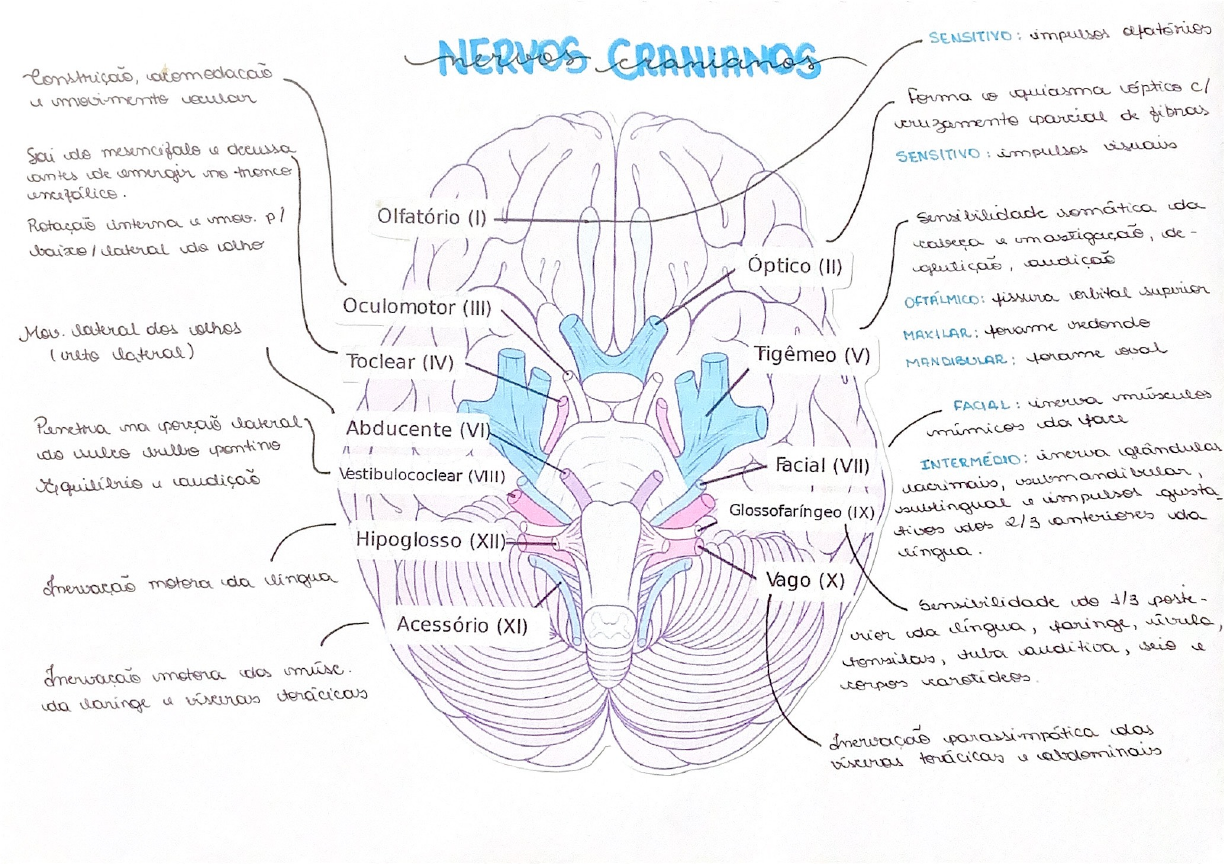 NERVOS CRANIANOS
nervos cranianos
Constrição, acomodação
e movimento ocular
Sai do mesencéfalo e decussa
antes de emergir no tronco
encefálico.
Rotação interna e mov. p/
baixo/lateral do olho
Mov. lateral dos olhos
(reto lateral)
Penetra na porção lateral
do sulco bulbo pontino
Equilíbrio e audição
Inervação motora da língua
Inervação motora dos músc.
da laringe e vísceras torácicas
Olfatório (I)
Oculomotor (III)
Toclear (IV)
Abducente (VI)
Vestibulococlear (VIII)
Hipoglosso (XII)
Acessório (XI)
Óptico (II)
Tigêmeo (V)
Facial (VII)
Glossofaríngeo (IX)
Vago (X)
SENSITIVO: impulsos olfatórios
Forma o quiasma óptico c/
cruzamento parcial de fibras
SENSITIVO: impulsos visuais
Sensibilidade somática da
cabeça e mastigação, de-
glutição, audição
OFTÁLMICO: fissura orbital superior
MAXILAR: forame redondo
MANDIBULAR: forame oval
FACIAL: inerva músculos
mímicos da face
INTERMÉDIO: inerva glândulas
lacrimais, submandibular,
sublingual e impulsos gusta-
tivos dos 2/3 anteriores da
língua.
Sensibilidade do 1/3 poste-
rior da língua, faringe, úvula,
tonsilas, tuba auditiva, seio e
corpos carotídeos.
Inervação parassimpática das
vísceras torácicas e abdominais